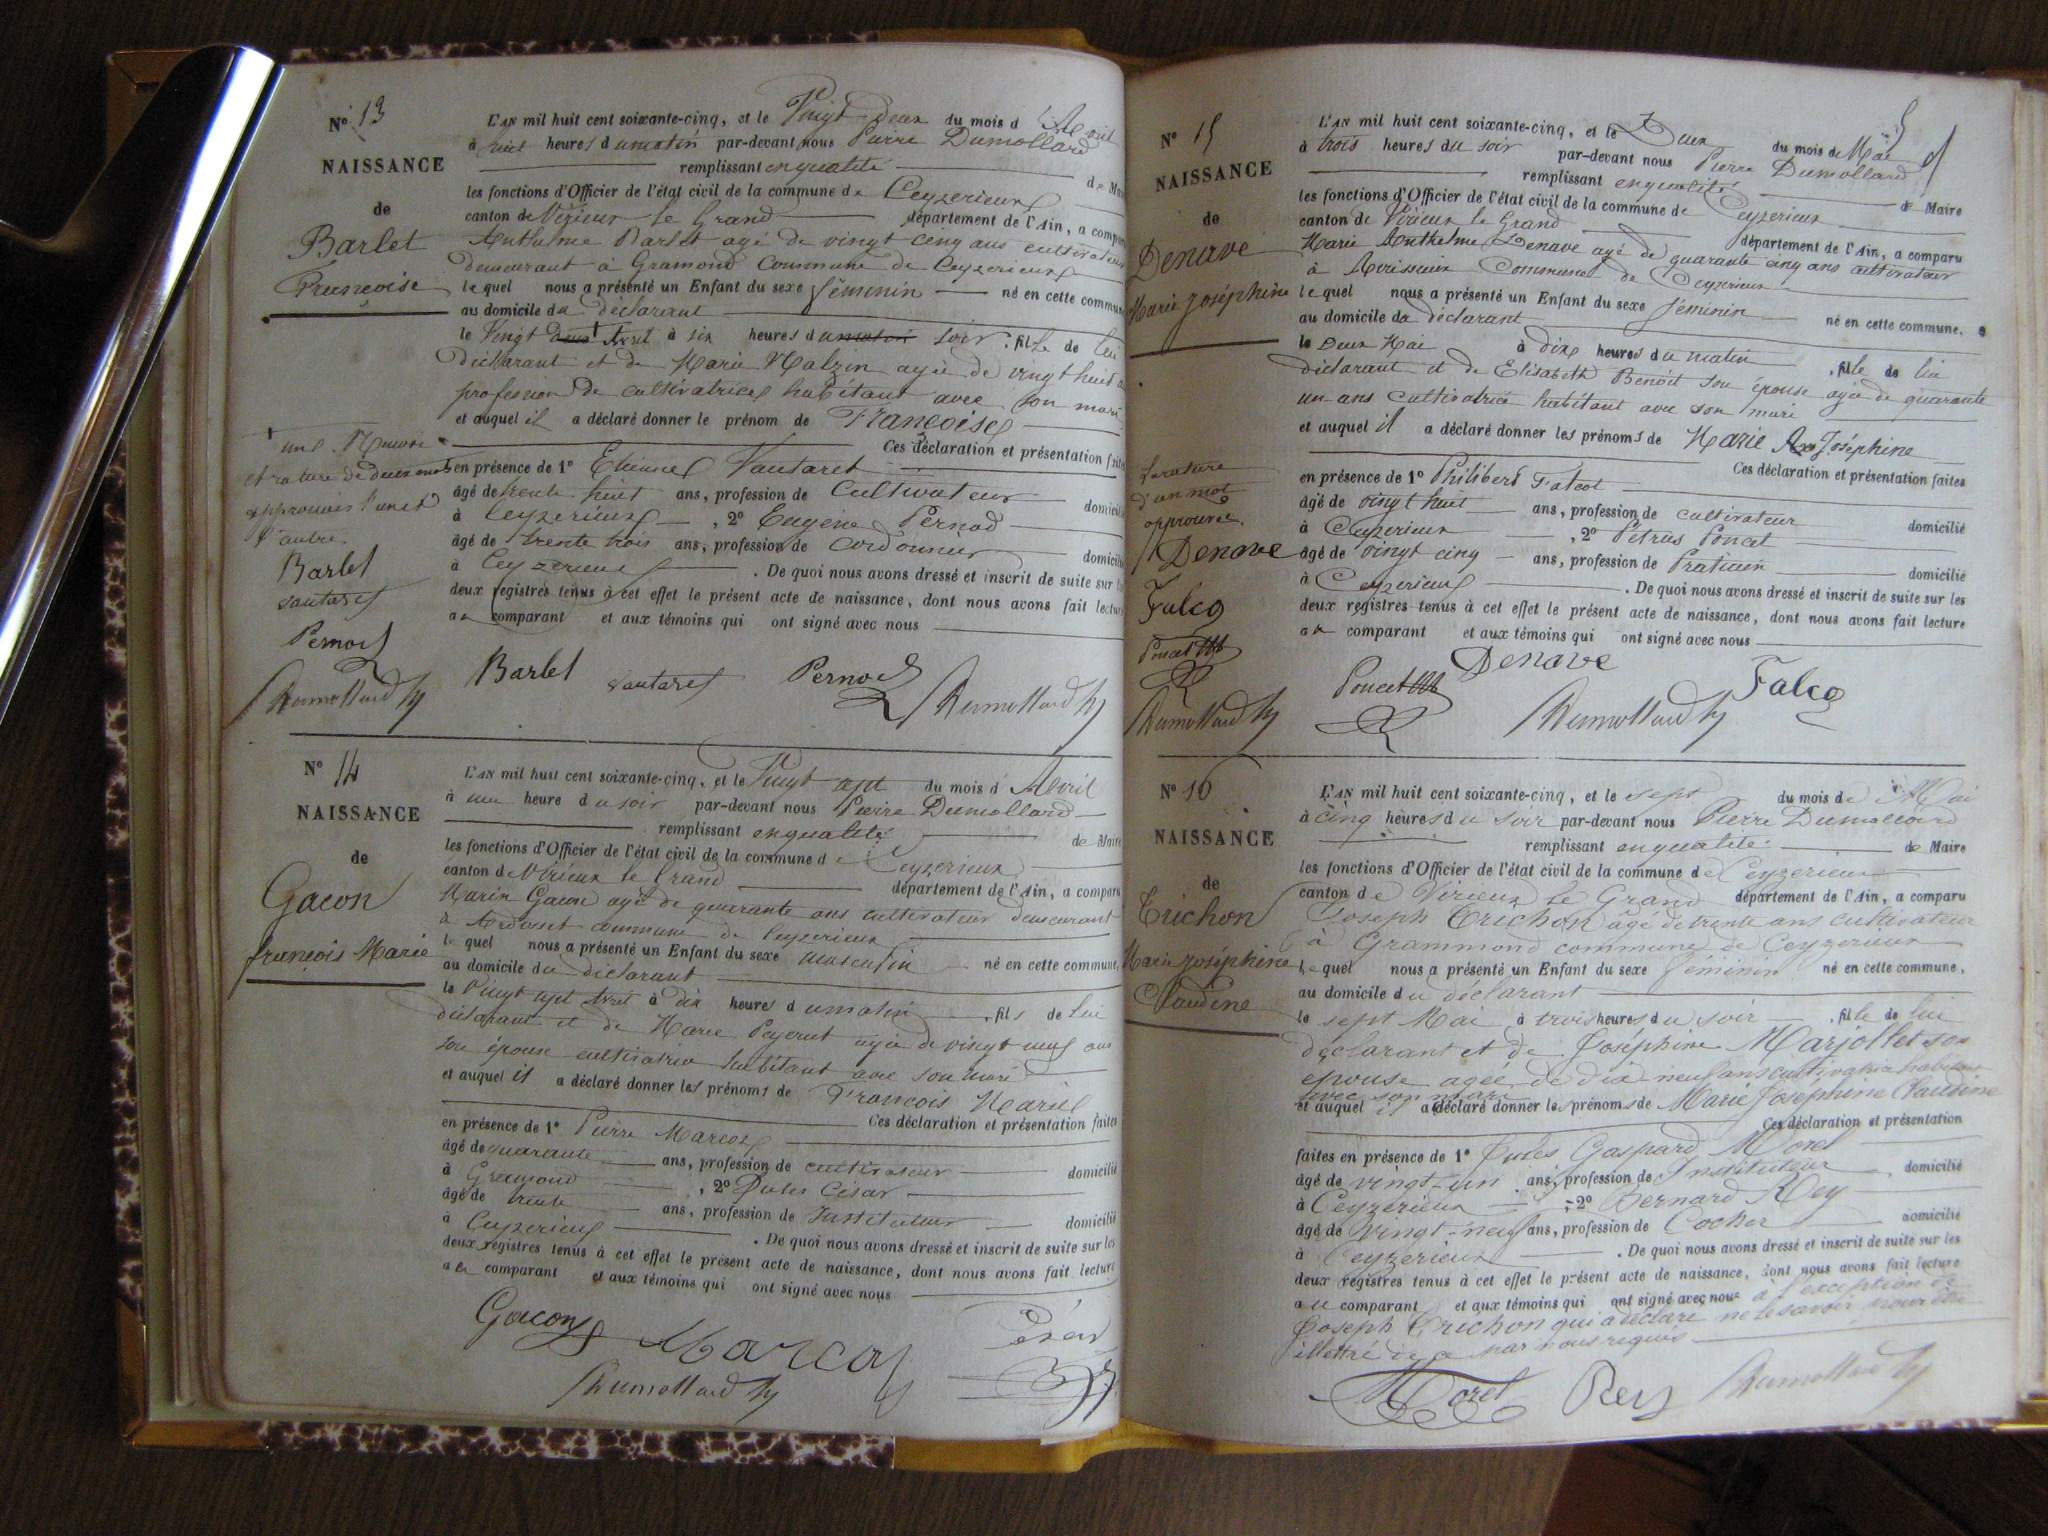 Nº 13
NAISSANCE
de
Barlet
Françoise
L'AN mil huit cent soixante-cinq, et le Vingt deux du mois d'Avril
à huit heures du matin par-devant nous Pierre Dumollard
remplissant en qualité de Maire
les fonctions d'Officier de l'état civil de la commune de Ceyzerieux
canton de Virieux le Grand département de l'Ain, a comparu
Anthelme Barlet agé de vingt cinq ans cultivateur
demeurant à Gramond Commune de Ceyzerieux
lequel nous a présenté un Enfant du sexe féminin né en cette commune
au domicile du déclarant
le Vingt Avril à six heures du matin soir . fille de lui
déclarant et de Marie Malzin agée de vingt huit
profession de cultivatrice habitant avec son mari
et auquel il a déclaré donner le prénom de Françoise
Ces déclaration et présentation faites
et rature de deux mots
approuvés l'un et
l'autre.
Barlet
Vautaret
Pernod
Dumollard
en présence de 1º Etienne Vautaret
âgé de trente huit ans, profession de Cultivateur domicilié
à Ceyzerieux , 2º Eugène Pernod
âgé de trente trois ans, profession de Cordonnier domicilié
à Ceyzerieux . De quoi nous avons dressé et inscrit de suite sur les
deux registres tenus à cet effet le présent acte de naissance, dont nous avons fait lecture
au comparant et aux témoins qui ont signé avec nous
Barlet Vautaret Pernod Dumollard
Nº 14
NAISSANCE
de
Gacon
françois Marie
L'AN mil huit cent soixante-cinq, et le Vingt sept du mois d'Avril
à une heure du soir par-devant nous Pierre Dumollard
remplissant en qualité de Maire
les fonctions d'Officier de l'état civil de la commune de Ceyzerieux
canton de Virieux le Grand département de l'Ain, a comparu
Marin Gacon agé de quarante ans cultivateur demeurant
à Ardosset commune de Ceyzerieux
lequel nous a présenté un Enfant du sexe masculin né en cette commune,
au domicile du déclarant
le Vingt sept Avril à dix heures du matin . fils de lui
déclarant et de Marie Peyerut agée de vingt neuf ans
son épouse cultivatrice habitant avec son mari
et auquel il a déclaré donner les prénoms de François Marie
Ces déclaration et présentation faites
en présence de 1º Pierre Marcoz
âgé de quarante ans, profession de cultivateur domicilié
à Gramond , 2º Jules César
âgé de trente ans, profession de Instituteur domicilié
à Ceyzerieux . De quoi nous avons dressé et inscrit de suite sur les
deux registres tenus à cet effet le présent acte de naissance, dont nous avons fait lecture
au comparant et aux témoins qui ont signé avec nous
Gacon Marcoz César
Dumollard
5
Nº 15
NAISSANCE
de
Denave
Marie Joséphine
L'AN mil huit cent soixante-cinq, et le Deux du mois de Mai
à trois heures du soir par-devant nous Pierre Dumollard
remplissant en qualité de Maire
les fonctions d'Officier de l'état civil de la commune de Ceyzerieux
canton de Virieux le Grand département de l'Ain, a comparu
Marie Anthelme Denave agé de quarante cinq ans cultivateur
à Avrissieu Commune de Ceyzerieux
lequel nous a présenté un Enfant du sexe féminin né en cette commune.
au domicile du déclarant
le Deux Mai à dix heures du matin . fille de lui
déclarant et de Elisabeth Benoit son épouse agée de quarante
un ans cultivatrice habitant avec son mari
et auquel il a déclaré donner les prénoms de Marie Joséphine
Ces déclaration et présentation faites
la rature
d'un mot
approuvée.
Denave
Falco
Poncet
Dumollard
en présence de 1º Philibert Falcot
âgé de vingt huit ans, profession de cultivateur domicilié
à Ceyzerieux , 2º Pétrus Poncet
âgé de vingt cinq ans, profession de Praticien domicilié
à Ceyzerieux . De quoi nous avons dressé et inscrit de suite sur les
deux registres tenus à cet effet le présent acte de naissance, dont nous avons fait lecture
au comparant et aux témoins qui ont signé avec nous
Poncet Denave Dumollard Falco
Nº 16
NAISSANCE
de
Trichon
Marie Joséphine
Claudine
L'AN mil huit cent soixante-cinq, et le sept du mois de Mai
à cinq heures du soir par-devant nous Pierre Dumollard
remplissant en qualité de Maire
les fonctions d'Officier de l'état civil de la commune de Ceyzerieux
canton de Virieux le Grand département de l'Ain, a comparu
Joseph Trichon agé de trente ans cultivateur
à Grammond commune de Ceyzerieux
lequel nous a présenté un Enfant du sexe féminin né en cette commune,
au domicile du déclarant
le sept Mai à trois heures du soir . fille de lui
déclarant et de Joséphine Marjollet son
épouse agée de dix neuf ans cultivatrice habitant
avec son mari
et auquel il a déclaré donner les prénoms de Marie Joséphine Claudine
Ces déclaration et présentation
faites en présence de 1º Jules Gaspard Morel
âgé de vingt-un ans, profession de Instituteur domicilié
à Ceyzérieux , 2º Bernard Rey
âgé de vingt-neuf ans, profession de Cocher domicilié
à Ceyzerieux . De quoi nous avons dressé et inscrit de suite sur les
deux registres tenus à cet effet le présent acte de naissance, dont nous avons fait lecture
au comparant et aux témoins qui ont signé avec nous à l'exception de
Joseph Trichon qui a déclaré ne le savoir pour être
illettré de ce par nous requis
Morel Rey Dumollard